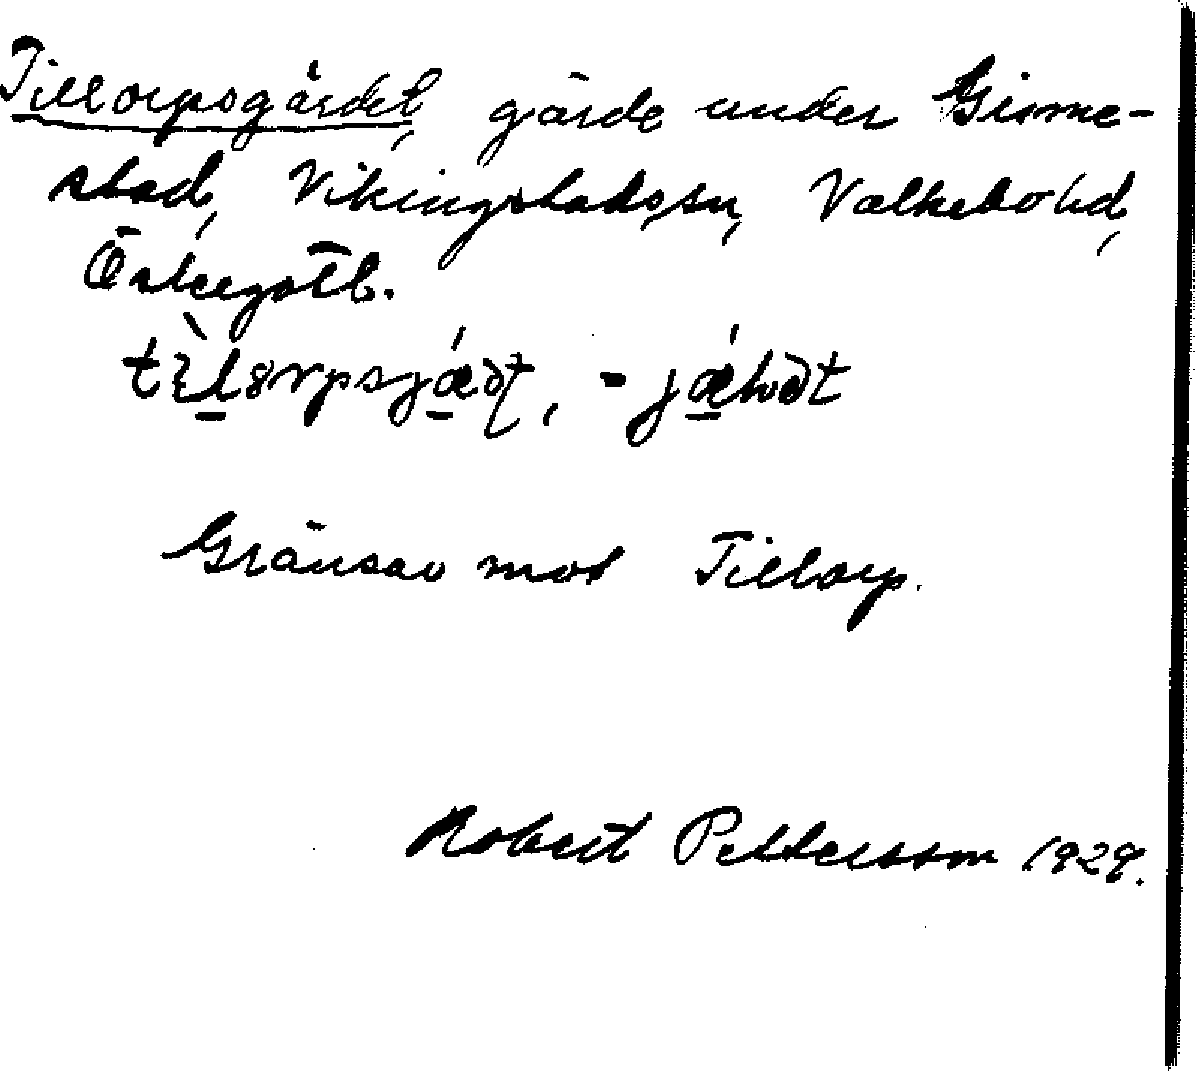 Tillorpsgärdet, gärde under Gisme-
stad, Vikingstads sn, Valkebo hd,
Östergötl.
Gränsar mot Tillorp.
Robert Pettersson 1929.